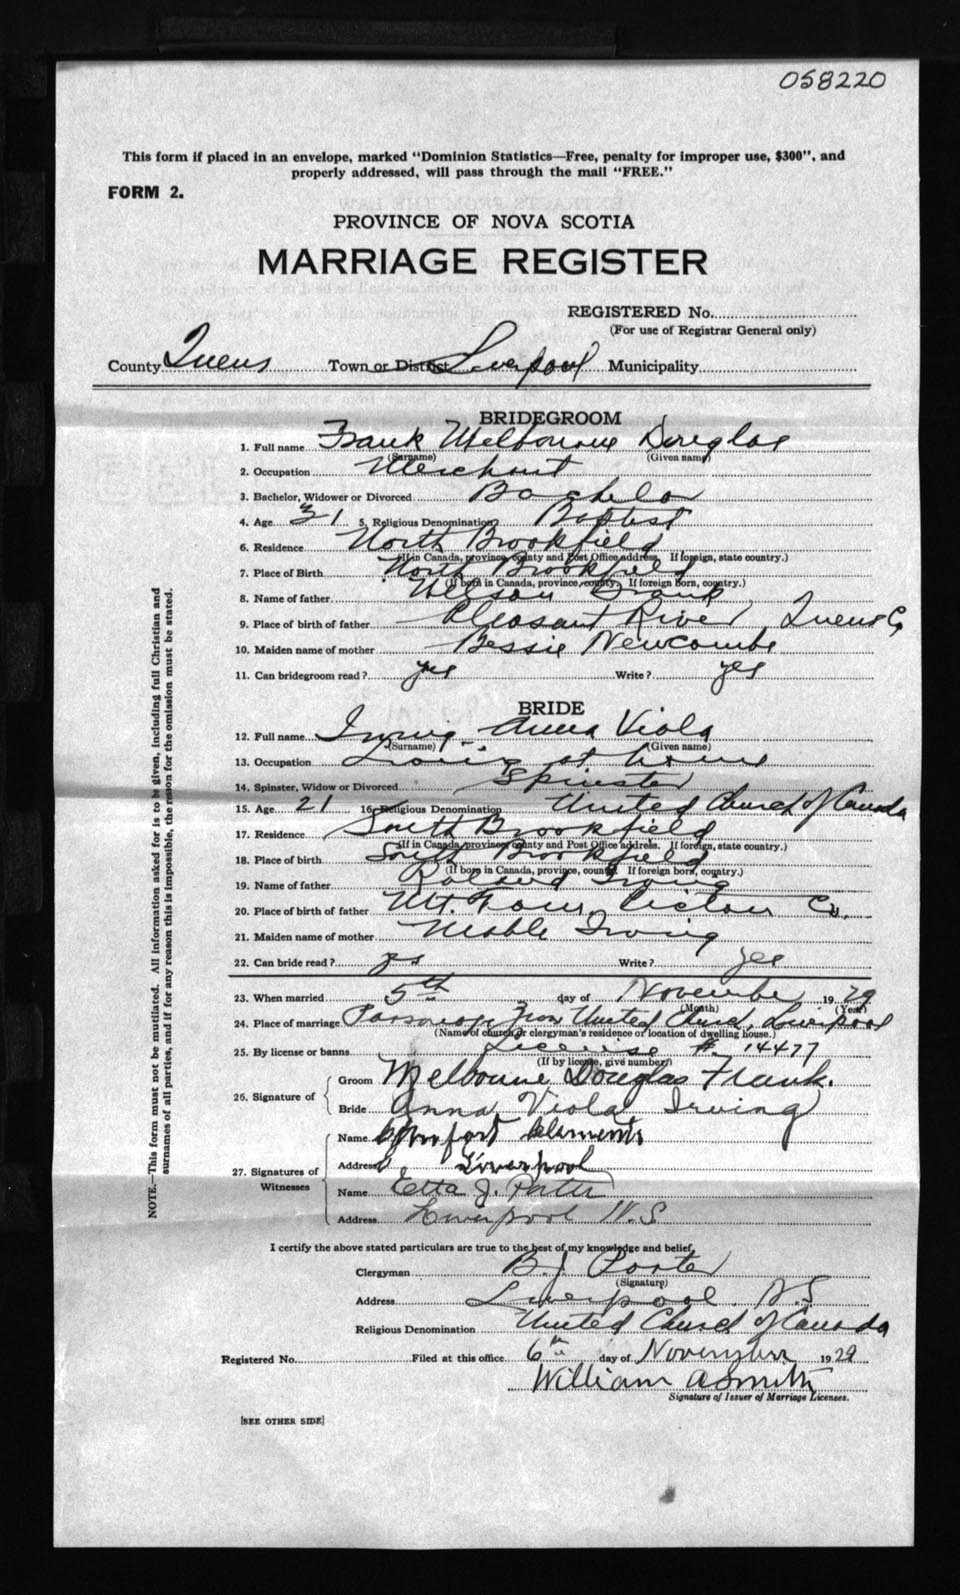 058220
This form if placed in an envelope, marked "Dominion Statistics—Free, penalty for improper use, $300", and
properly addressed, will pass through the mail "FREE."
FORM 2.
PROVINCE OF NOVA SCOTIA
MARRIAGE REGISTER
REGISTERED No.
(For use of Registrar General only)
County Queens Town or District Liverpool Municipality
BRIDEGROOM
1. Full name Frank Melbourne Douglas
(Surname) (Given name)
2. Occupation Merchant
3. Bachelor, Widower or Divorced Bachelor
4. Age 31 5. Religious Denomination Baptist
6. Residence North Brookfield
(If in Canada, province, county and Post Office address. If foreign, state country.)
7. Place of Birth North Brookfield
(If born in Canada, province, county. If foreign born, country.)
8. Name of father Wilson Frank
9. Place of birth of father Pleasant River, Queens Co
10. Maiden name of mother Bessie Newcombe
11. Can bridegroom read? yes Write? yes
BRIDE
12. Full name Irving Anna Viola
(Surname) (Given name)
13. Occupation Living at home
14. Spinster, Widow or Divorced Spinster
15. Age 21 16. Religious Denomination United Church of Canada
17. Residence South Brookfield
(If in Canada, province, county and Post Office address. If foreign, state country.)
18. Place of birth South Brookfield
(If born in Canada, province, county. If foreign born, country.)
19. Name of father Roland Irving
20. Place of birth of father Mt. Thom, Pictou Co.
21. Maiden name of mother Mable Irving
22. Can bride read? yes Write? yes
23. When married 5th day of November 1929
(Month) (Year)
24. Place of marriage Parsonage Zion United Church, Liverpool
(Name of church or clergyman's residence or location of dwelling house.)
25. By license or banns License # 14477
(If by license, give number)
26. Signature of
Groom Melbourne Douglas Frank.
Bride Anna Viola Irving
27. Signatures of Witnesses
Name Comfort Clements
Address Liverpool
Name Etta J. Porter
Address Liverpool N.S
I certify the above stated particulars are true to the best of my knowledge and belief,
Clergyman B.J. Porter
(Signature)
Address Liverpool, N.S
Religious Denomination United Church of Canada
Registered No. Filed at this office 6th day of November 1929
William A Smith
Signature of Issuer of Marriage Licenses.
[SEE OTHER SIDE]
NOTE.—This form must not be mutilated. All information asked for is to be given, including full Christian and
surnames of all parties, and if for any reason this is impossible, the reason for the omission must be stated.